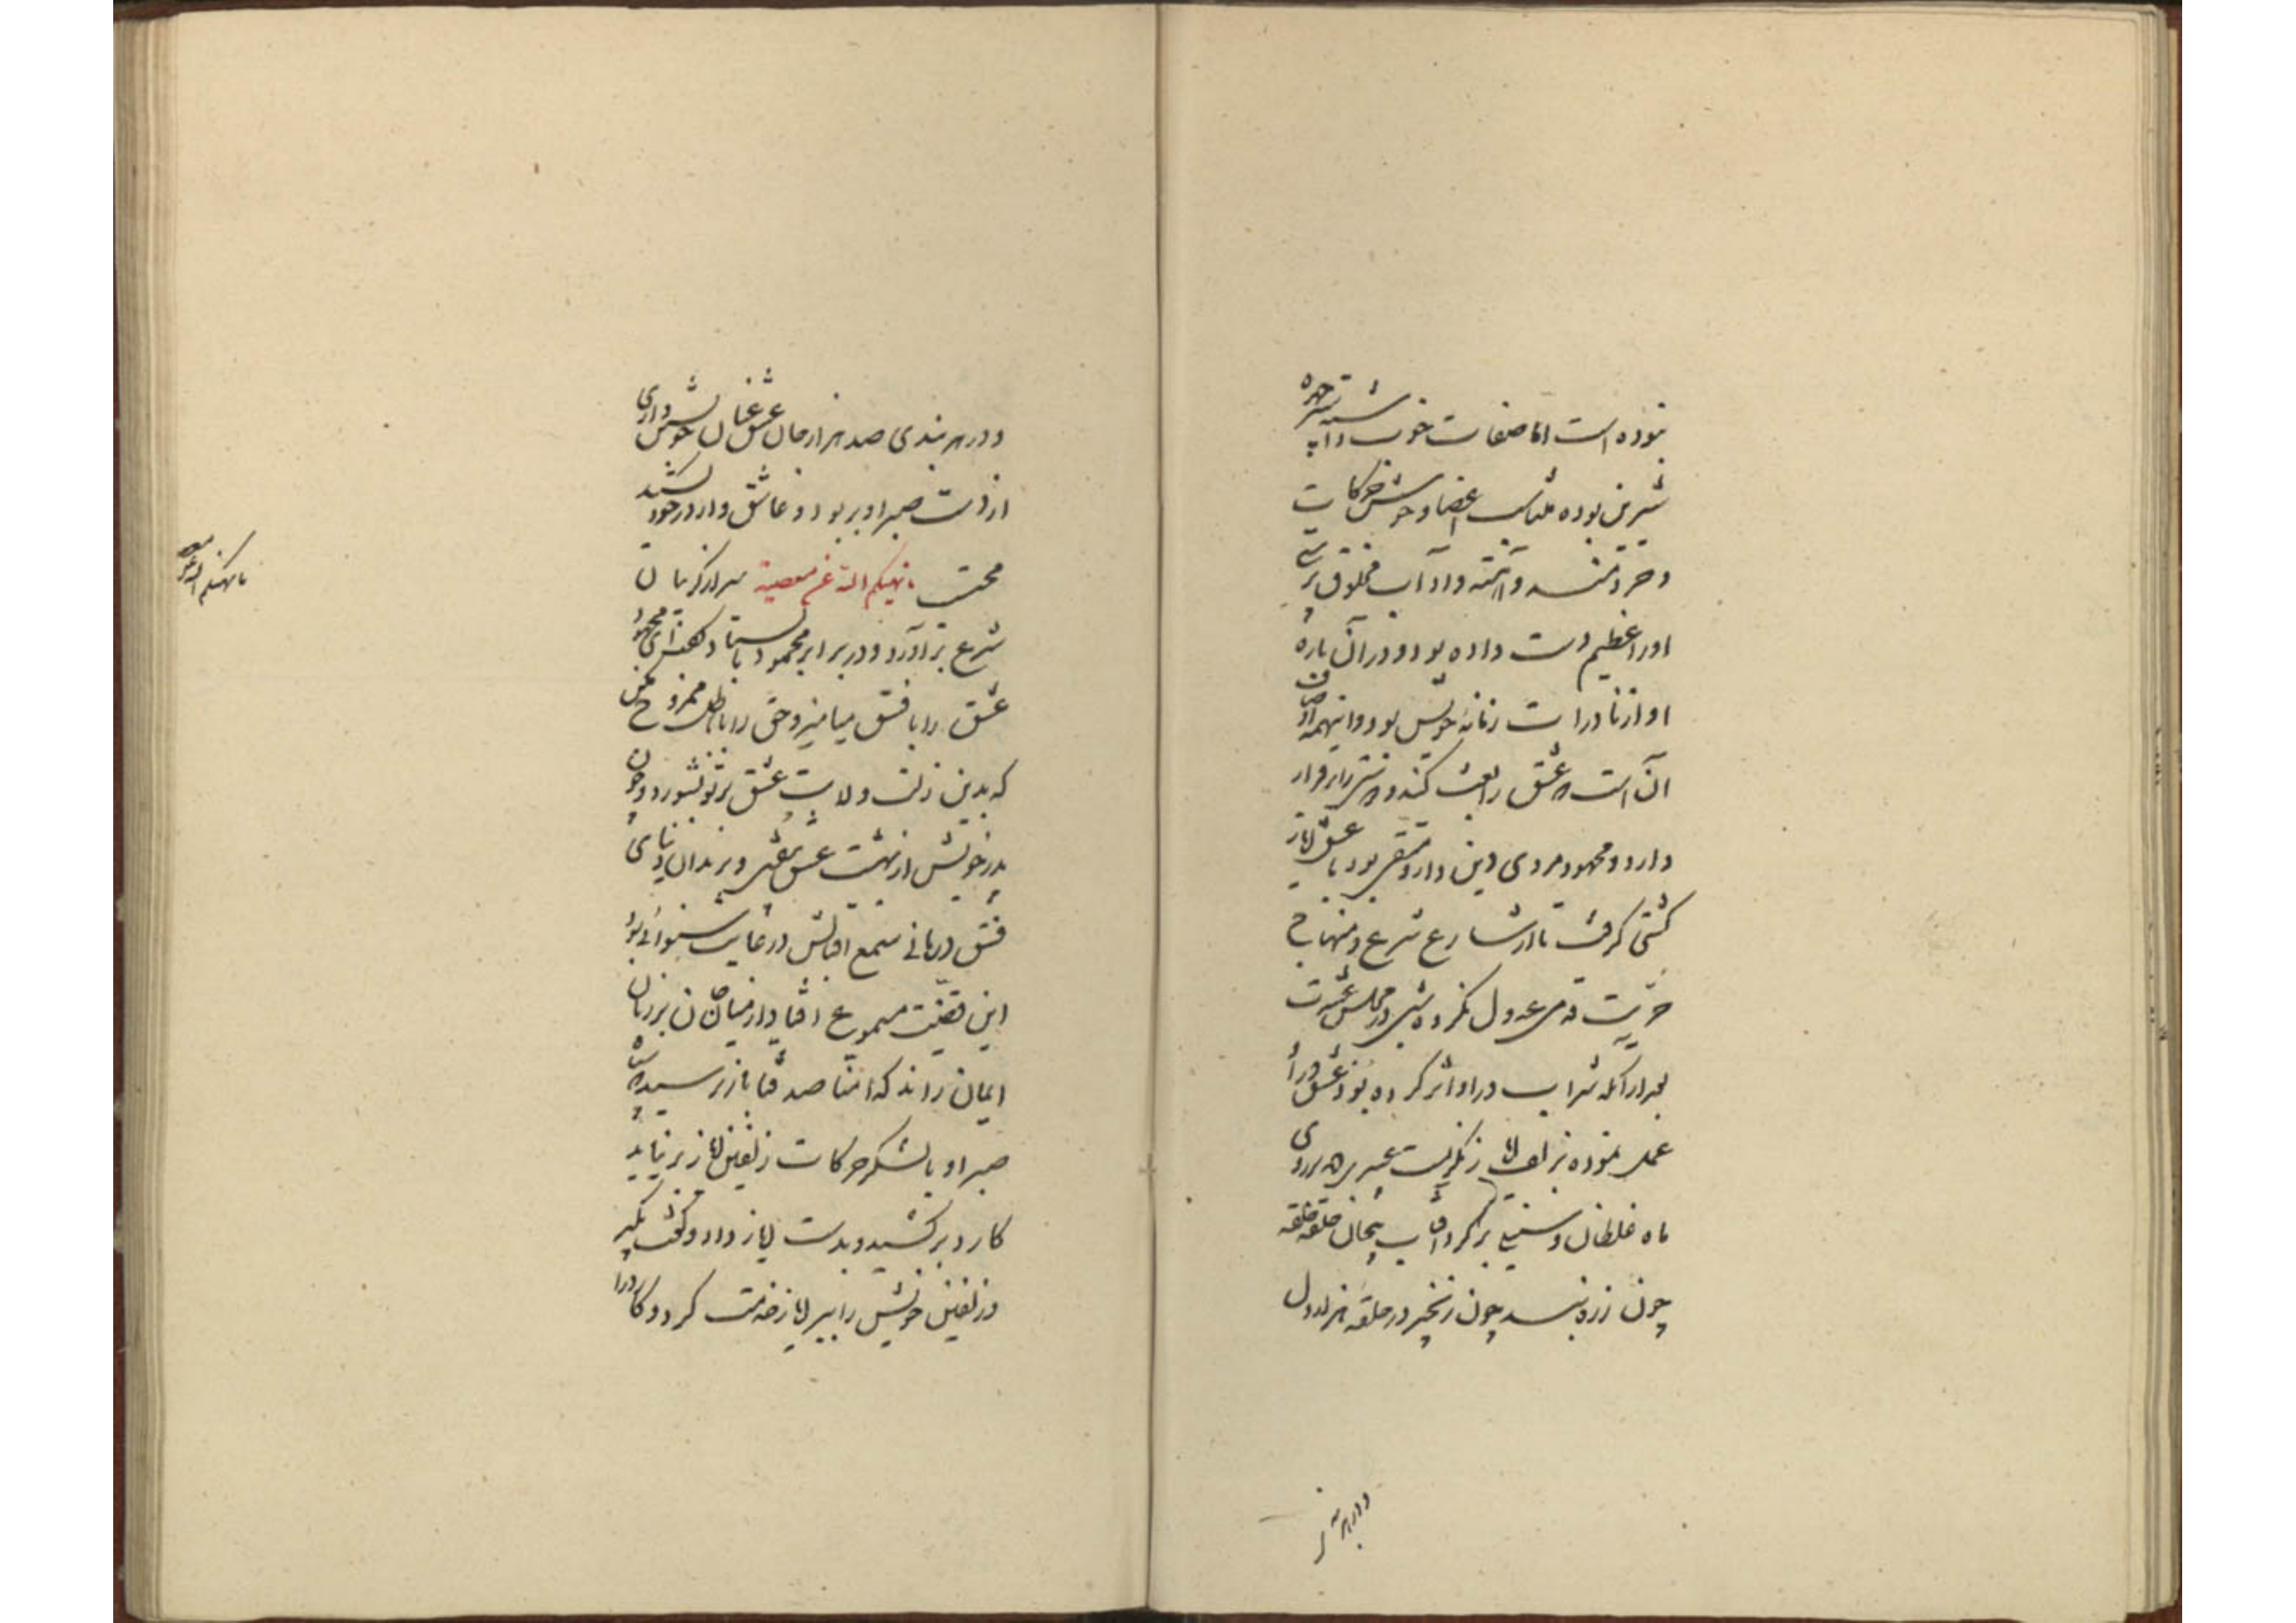 نبوده است اما صفات خوب داشته سبز چهره
شیرین بوده متناسب اعضا و خوش حرکات
و خردمند و آهسته و آداب مخلوق پرستی
او را عظیم دست داده بود و در آن باره
او از نادرات زمانه خویش بود و اینهمه اوصاف
آنست که عشق را بعث کند و دوستی را برقرار
دارد و محمود مردی دین دار و متقی بود با عشق ایاز
کشتی گرفت تا از شارع شرع و منهاج
حریت قدمی عدول نکرد شبی در مجلس عشرت
بعد از آنکه شراب در او اثر کرده بود و عشق در او
عمل نموده بزلف ایاز نگریست عنبری دید بر روی
ماه غلطان و سنبلی بر گرد آفتاب پیچان حلقه حلقه
چون زره بند بند چون زنجیر در حلقه هزار دل
و در هر بندی
و در هر بندی صد هزار جان عشق عنان خویشتن داری
از دست صبر او بربود و عاشق وار در خود کشید
محتسب ما نهیکم الله عن معصیة سر از گریبان
شرع برآورد و در برابر محمود بایستاد و گفت ای محمود
عشق را با فسق میامیز و حق را با باطل ممزوج مکن
که بدین زلت ولایت عشق بر تو بشورد و چون
پدر خویش از بهشت عشق بیفتی و بزندان دنیای
فسق درمانی سمع اقبالش در غایت شنوائی بود
این قضیت مسموع افتاد از میان جان بر زبان
ایمان راند که آمنا و صدقنا باز ترسید که سپاه
صبر او با لشکر حرکات زلفین ایاز بر نیاید
کارد برکشید و بدست ایاز داد و گفت بگیر
و زلفین خویش را ببر ایاز خدمت کرد و کارد را
ما نهیکم الله عن معصیة